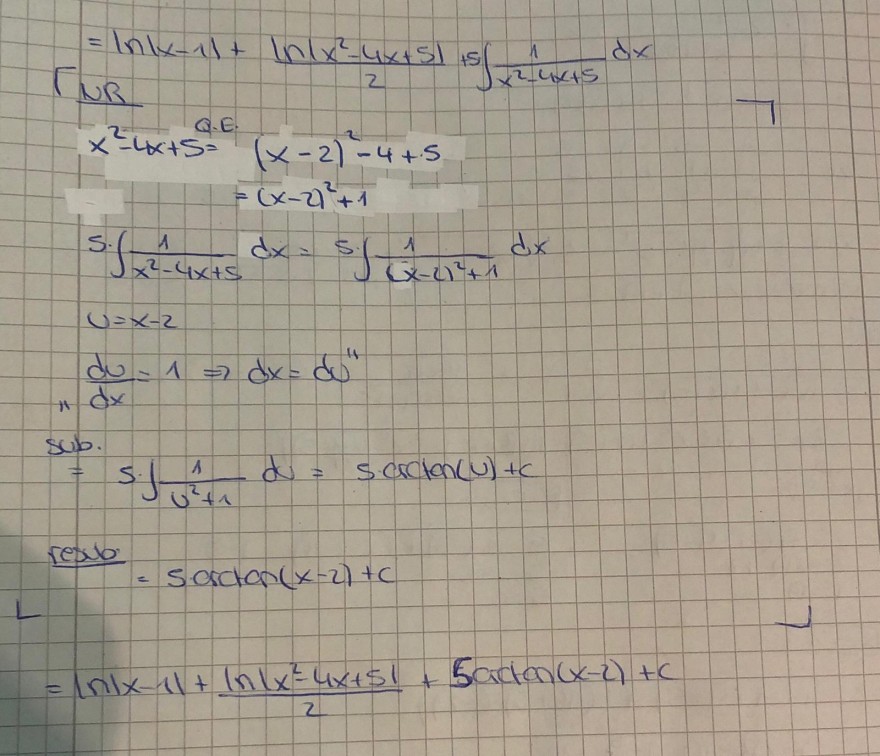 = ln|x-1| + ln|x²-4x+5|/2 +5∫ 1/(x²-4x+5) dx
NR
x²-4x+5 = Q.E. (x-2)² -4+5
= (x-2)²+1
5·∫ 1/(x²-4x+5) dx = 5·∫ 1/((x-2)²+1) dx
u=x-2
" du/dx = 1 => dx = du "
sub.
= 5·∫ 1/(u²+1) du = 5 arctan(u)+c
resub.
= 5 arctan(x-2)+c
= ln|x-1| + ln|x²-4x+5|/2 + 5 arctan(x-2) + c